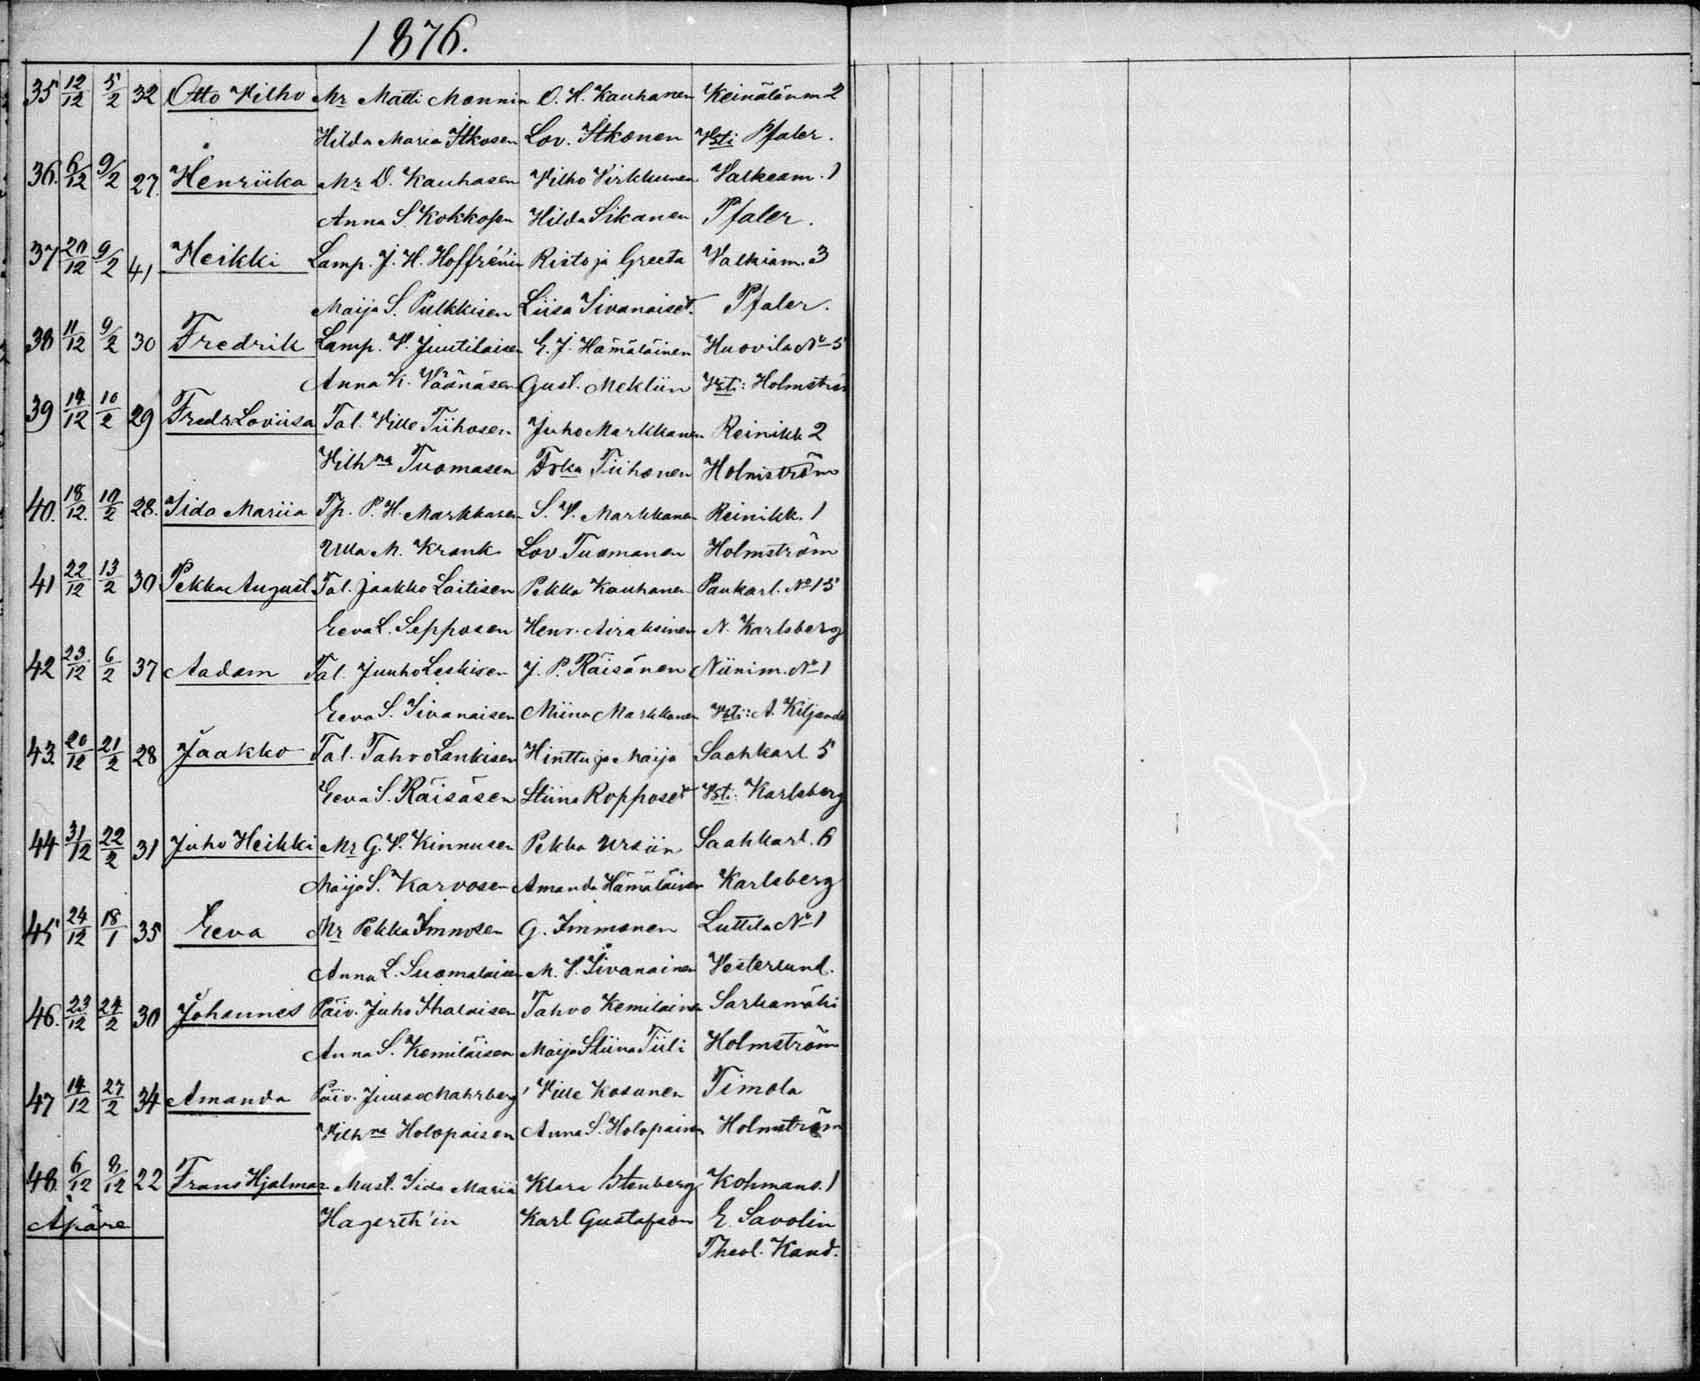 1876.
35 12/12 5/2 32 Otto Vilho Mr Matti Mannin O. H. Kauhanen Keinälänm 2
Hilda Maria Itkosen Lov. Itkonen Vsti Pfaler.
36. 6/12 9/2 27. Henriika Mr D. Kauhasen Vilho Virkkunen Valkeam. 1
Anna S Kokkosen Hilda Sikanen Pfaler.
37 20/12 9/2 41 Heikki Lamp. J. H. Hoffrénin Risto ja Greeta Valkiam. 3
Maija S. Pulkkisen Liisa Iivanaiset. Pfaler.
38 11/12 9/2 30 Fredrik Lamp. V. Juutilaisen E. J. Hämäläinen Huovila No 5
Anna K. Väänäsen Gust. Mekliin Vsti: Holmström
39 14/12 10/2 29 Fredr. Loviisa Tal. Ville Tiihosen Juho Markkanen Reinikk 2
Vilhna Tuomasen Frka Tiihonen Holmström
40. 18/12. 10/2 28. Iida Mariia Tp. P. H. Markkasen S. V. Markkanen Reinikk. 1
Ulla M. Krank Lov Tuomanen Holmström
41 22/12 13/2 30 Pekka August Tal. Jaakko Laitisen Pekka Kauhanen Paukarl. No 15
Eeva L. Sepposen Henr. Airaksinen N. Karlsberg
42 23/12 6/2 37 Aadam Tal. Juuho Leskisen J. P. Räisänen Niinim. No 1
Eeva S. Iivanaisen Miina Markkanen Vsti: A. Kiljander
43. 20/12 21/2 28 Jaakko Tal. Tahvo Lankisen Hinttu ja Maija Saahkarl. 5
Eeva S. Räisäsen Stiina Ropposet Vsti: Karlsberg
44 31/12 22/2 31 Juho Heikki Mr G. V. Kinnusen Pekka Ursiin Saahkarl. 6
Maija S. Karvosen Amanda Hämäläinen Karlsberg
45 24/12 18/1 35 Eeva Mr Pekka Immosen G. Immonen Luttila No 1
Anna L. Suomalaisen M. V. Iivanainen Vesterlund.
46. 23/12 24/2 30 Johannes Päiv. Juho Ihalaisen Tahvo Kemiläinen Sarkamäki
Anna S. Kemiläisen Maija Stiina Tiili Holmström
47 14/12 27/2 34 Amanda Päiv. Juuso Mahrberg Ville Kosunen Timola
Vilhna Holopaisen Anna S. Holopainen Holmström
48. 6/12 8/12 22 Frans Hjalmar Must. Iida Mariia Klara Stenberg Kohmans. 1
Äpäre Hagerth'in Karl Gustafson E. Savolin
Theol. Kand.